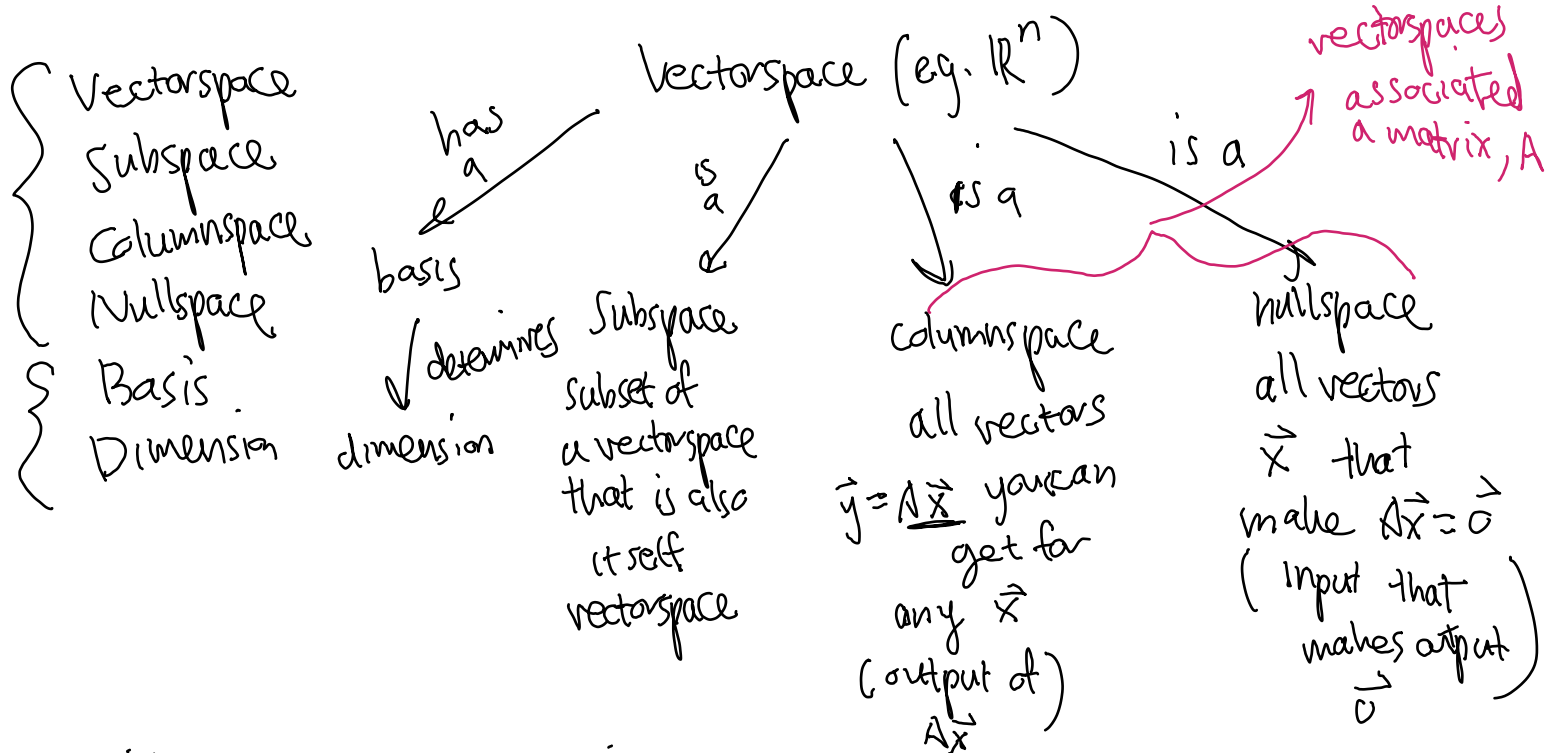 Vectorspace
Subspace
Columnspace
Nullspace
Basis
Dimension
Vectorspace (e.g. ℝⁿ)
vectorspaces
associated
a matrix, A
has
a
is
a
is a
is a
basis
determines
dimension
Subspace
subset of
a vectorspace
that is also
itself
vectorspace
columnspace
all vectors
y⃗ = Ax⃗ you can
get for
any x⃗
(output of)
Ax⃗
nullspace
all vectors
x⃗ that
make Ax⃗ = 0⃗
(input that
makes output)
0⃗